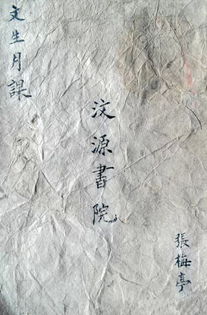 文生月課
汶源書院
張梅亭